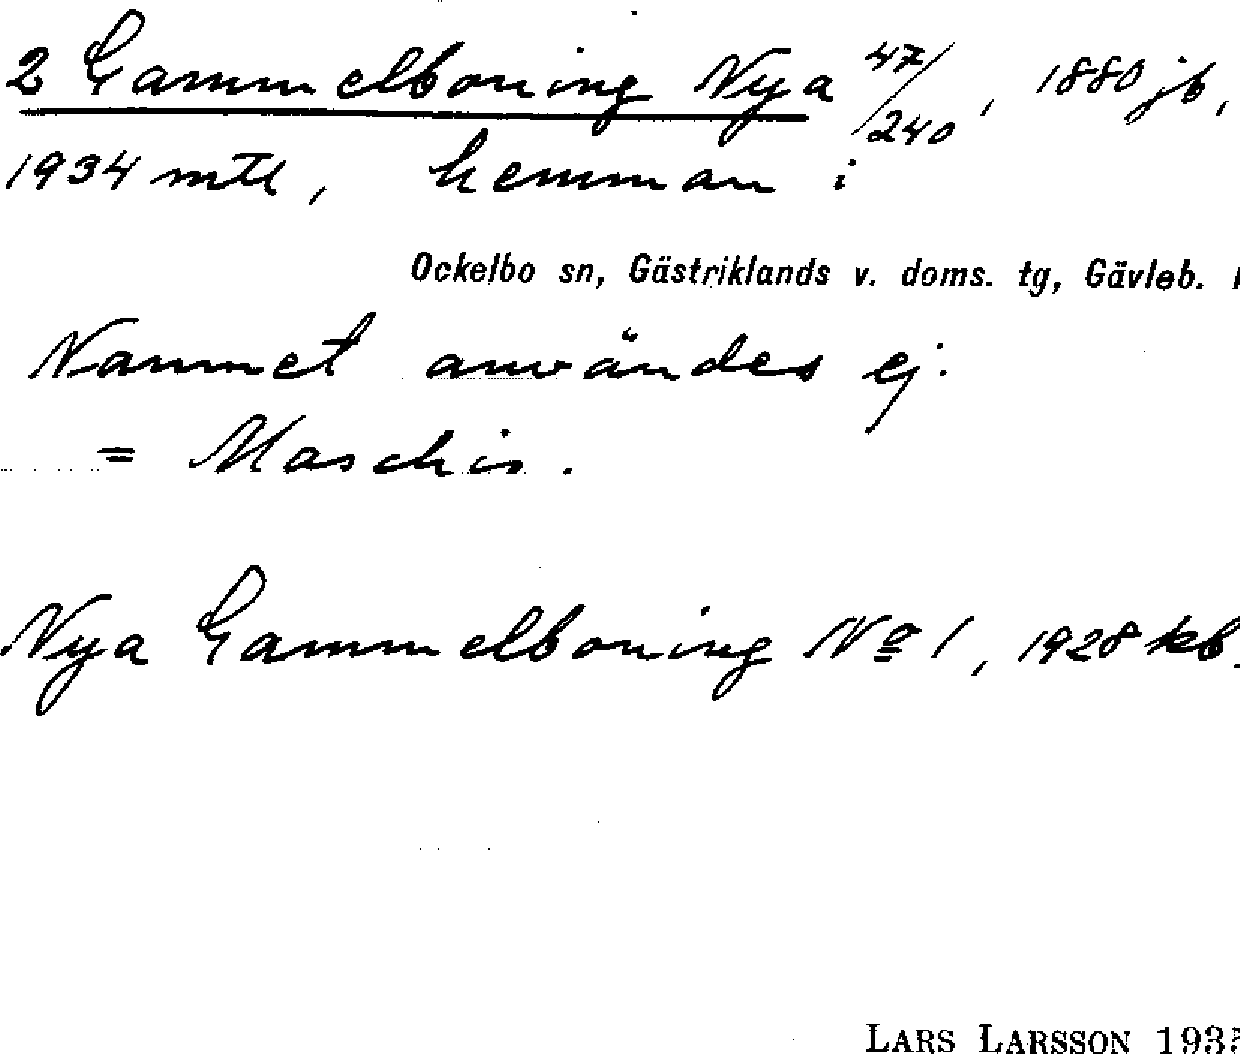 2 Gammelboning Nya 47/240, 1880 jb,
1934 mtl, hemman i
Ockelbo sn, Gästriklands v. doms. tg, Gävleb.
Namnet användes ej.
= Maschis.
Nya Gammelboning No 1, 1928 kb.
LARS LARSSON 193